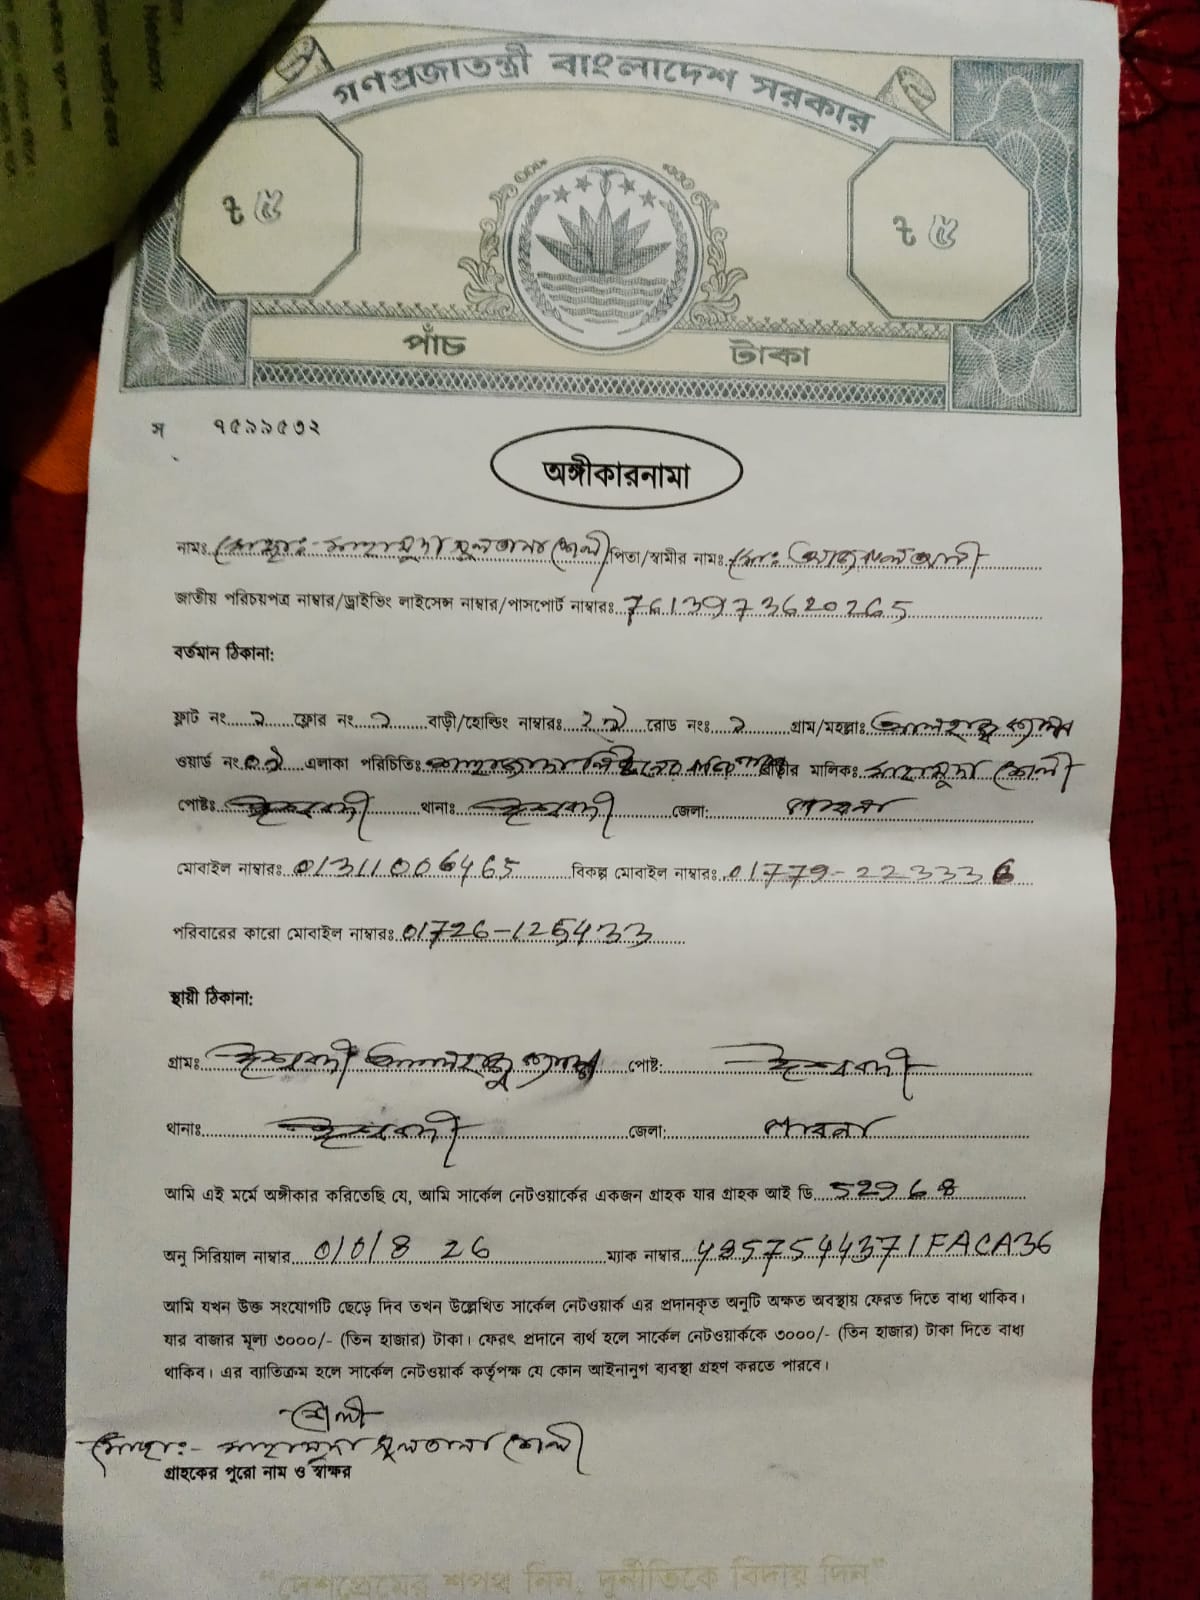 গণপ্রজাতন্ত্রী বাংলাদেশ সরকার
৳ ৫ ৳ ৫
পাঁচ টাকা
স ৭৫৯৯৫৩২
অঙ্গীকারনামা
নামঃ মোছাঃ- মাহামুদা সুলতানা শেলী পিতা/স্বামীর নামঃ মোঃ
জাতীয় পরিচয়পত্র নাম্বার/ড্রাইভিং লাইসেন্স নাম্বার/পাসপোর্ট নাম্বারঃ 7613973620265
বর্তমান ঠিকানা:
ফ্লাট নং ফ্লোর নং বাড়ী/হোল্ডিং নাম্বারঃ রোড নংঃ গ্রাম/মহল্লাঃ
ওয়ার্ড নং এলাকা পরিচিতিঃ বাড়ীর মালিকঃ মাহামুদা শেলী
পোষ্টঃ ঈশ্বরদী থানাঃ ঈশ্বরদী জেলা: পাবনা
মোবাইল নাম্বারঃ 01311006465 বিকল্প মোবাইল নাম্বারঃ 01779-223336
পরিবারের কারো মোবাইল নাম্বারঃ 01726-125433
স্থায়ী ঠিকানা:
গ্রামঃ ঈশ্বরদী পোষ্ট: ঈশ্বরদী
থানাঃ ঈশ্বরদী জেলা: পাবনা
আমি এই মর্মে অঙ্গীকার করিতেছি যে, আমি সার্কেল নেটওয়ার্কের একজন গ্রাহক যার গ্রাহক আই ডি 52968
অনু সিরিয়াল নাম্বার 01018 26 ম্যাক নাম্বার 4957544371FACA36
আমি যখন উক্ত সংযোগটি ছেড়ে দিব তখন উল্লেখিত সার্কেল নেটওয়ার্ক এর প্রদানকৃত অনুটি অক্ষত অবস্থায় ফেরত দিতে বাধ্য থাকিব।
যার বাজার মূল্য ৩০০০/- (তিন হাজার) টাকা। ফেরৎ প্রদানে ব্যর্থ হলে সার্কেল নেটওয়ার্ককে ৩০০০/- (তিন হাজার) টাকা দিতে বাধ্য
থাকিব। এর ব্যাতিক্রম হলে সার্কেল নেটওয়ার্ক কর্তৃপক্ষ যে কোন আইনানুগ ব্যবস্থা গ্রহণ করতে পারবে।
শেলী
মোছাঃ- মাহামুদা সুলতানা শেলী
গ্রাহকের পুরো নাম ও স্বাক্ষর
"দেশপ্রেমের শপথ নিন, দুর্নীতিকে বিদায় দিন"